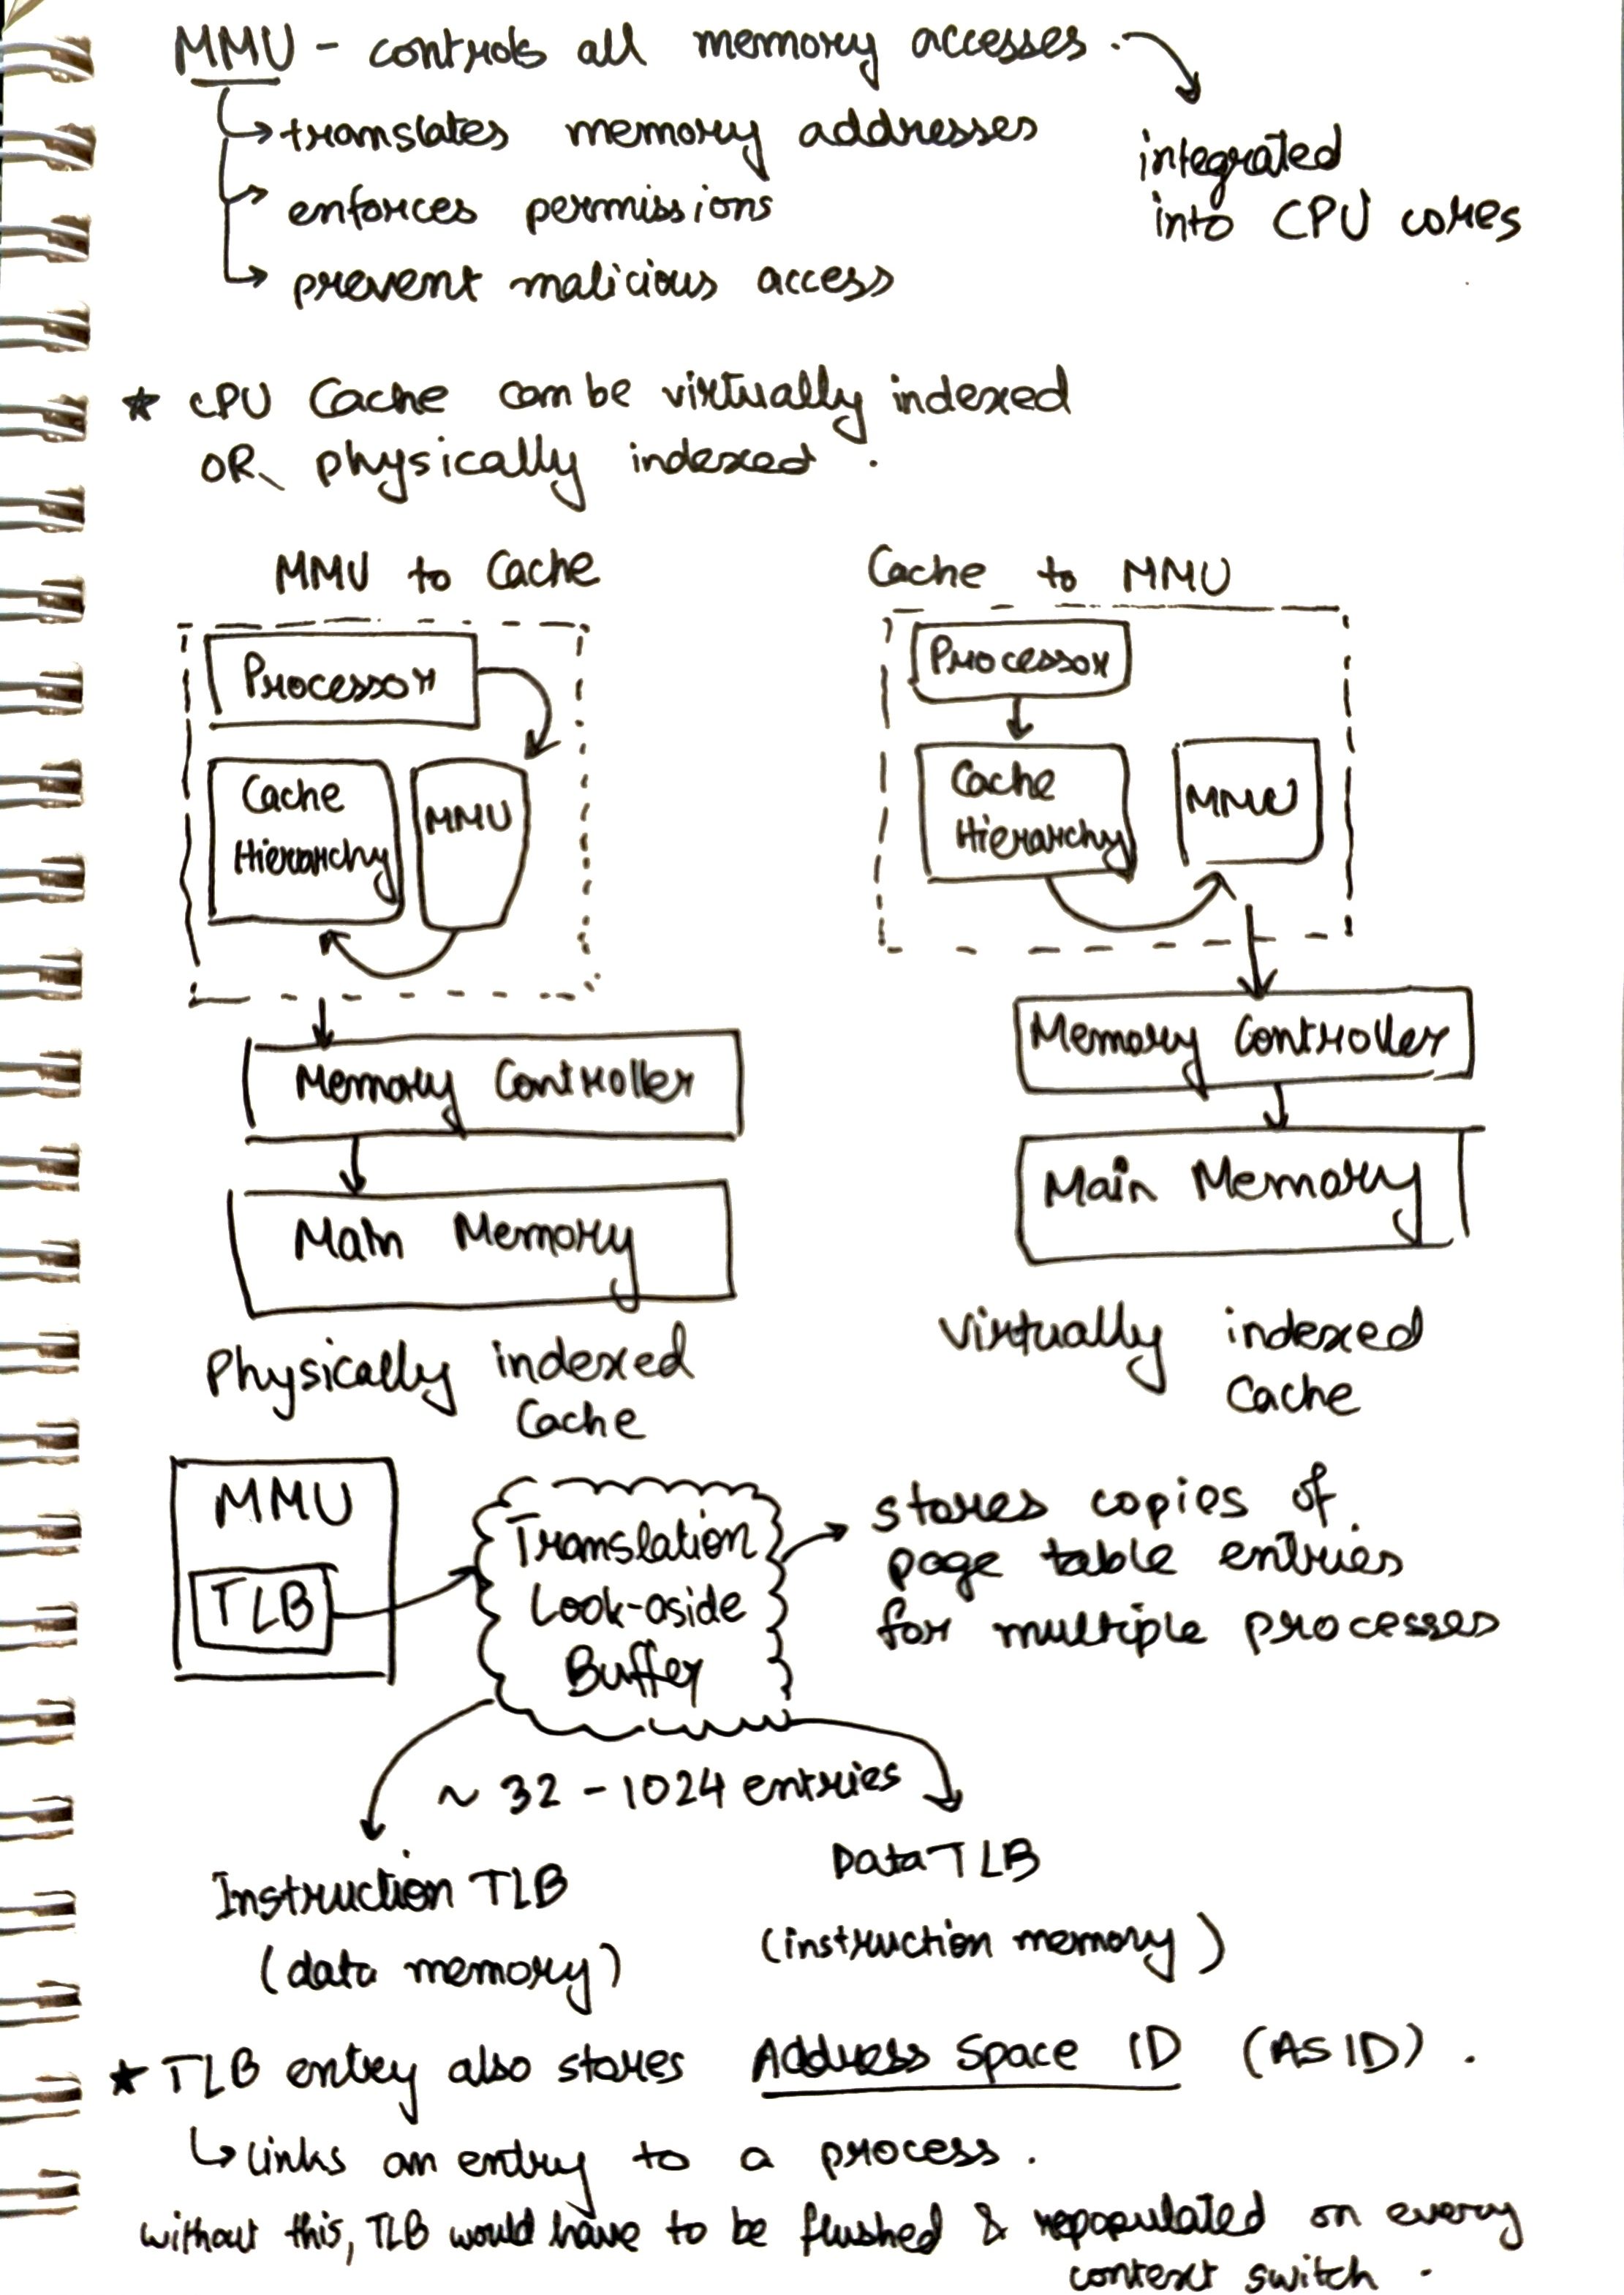 MMU - controls all memory accesses.
integrated
into CPU cores
translates memory addresses
enforces permissions
prevent malicious access
★ CPU Cache can be virtually indexed
OR physically indexed.
MMU to Cache
Processor
Cache
Hierarchy
MMU
Memory Controller
Main Memory
Physically indexed
Cache
Cache to MMU
Processor
Cache
Hierarchy
MMU
Memory Controller
Main Memory
Virtually indexed
Cache
MMU
TLB
Translation
Look-aside
Buffer
stores copies of
page table entries
for multiple processes
~ 32 - 1024 entries
Instruction TLB
(data memory)
Data TLB
(instruction memory)
★ TLB entry also stores Address Space ID (ASID).
links an entry to a process.
without this, TLB would have to be flushed & repopulated on every
context switch.